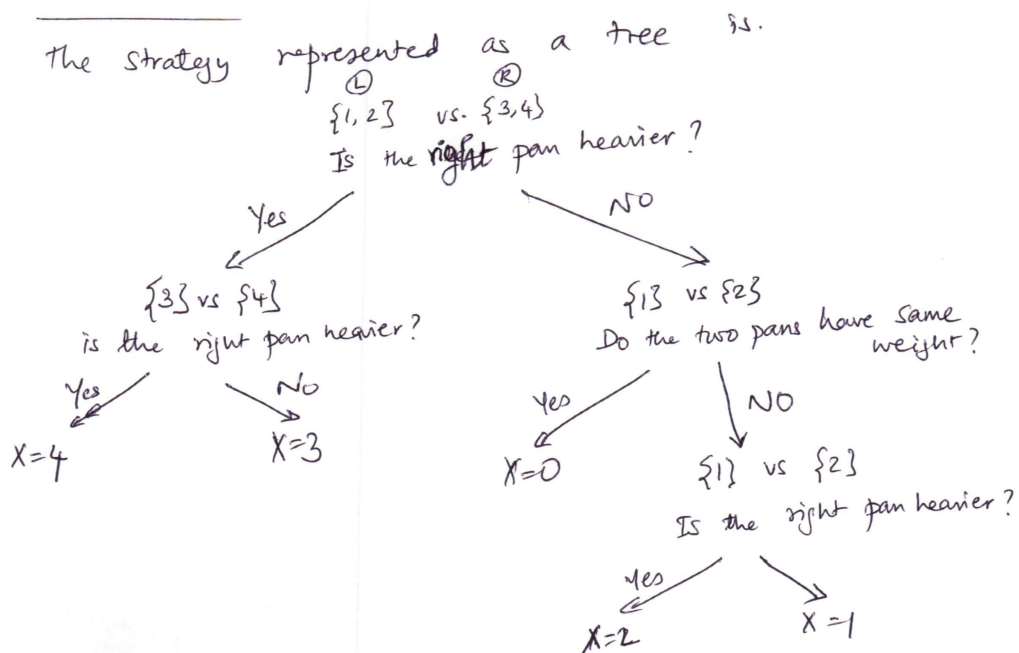 The strategy represented as a tree is.
Ⓛ Ⓡ
{1,2} vs. {3,4}
Is the right pan heavier?
Yes NO
{3} vs {4} {1} vs {2}
is the right pan heavier? Do the two pans have same weight?
Yes No Yes NO
X=4 X=3 X=0 {1} vs {2}
Is the right pan heavier?
Yes
X=2 X=1